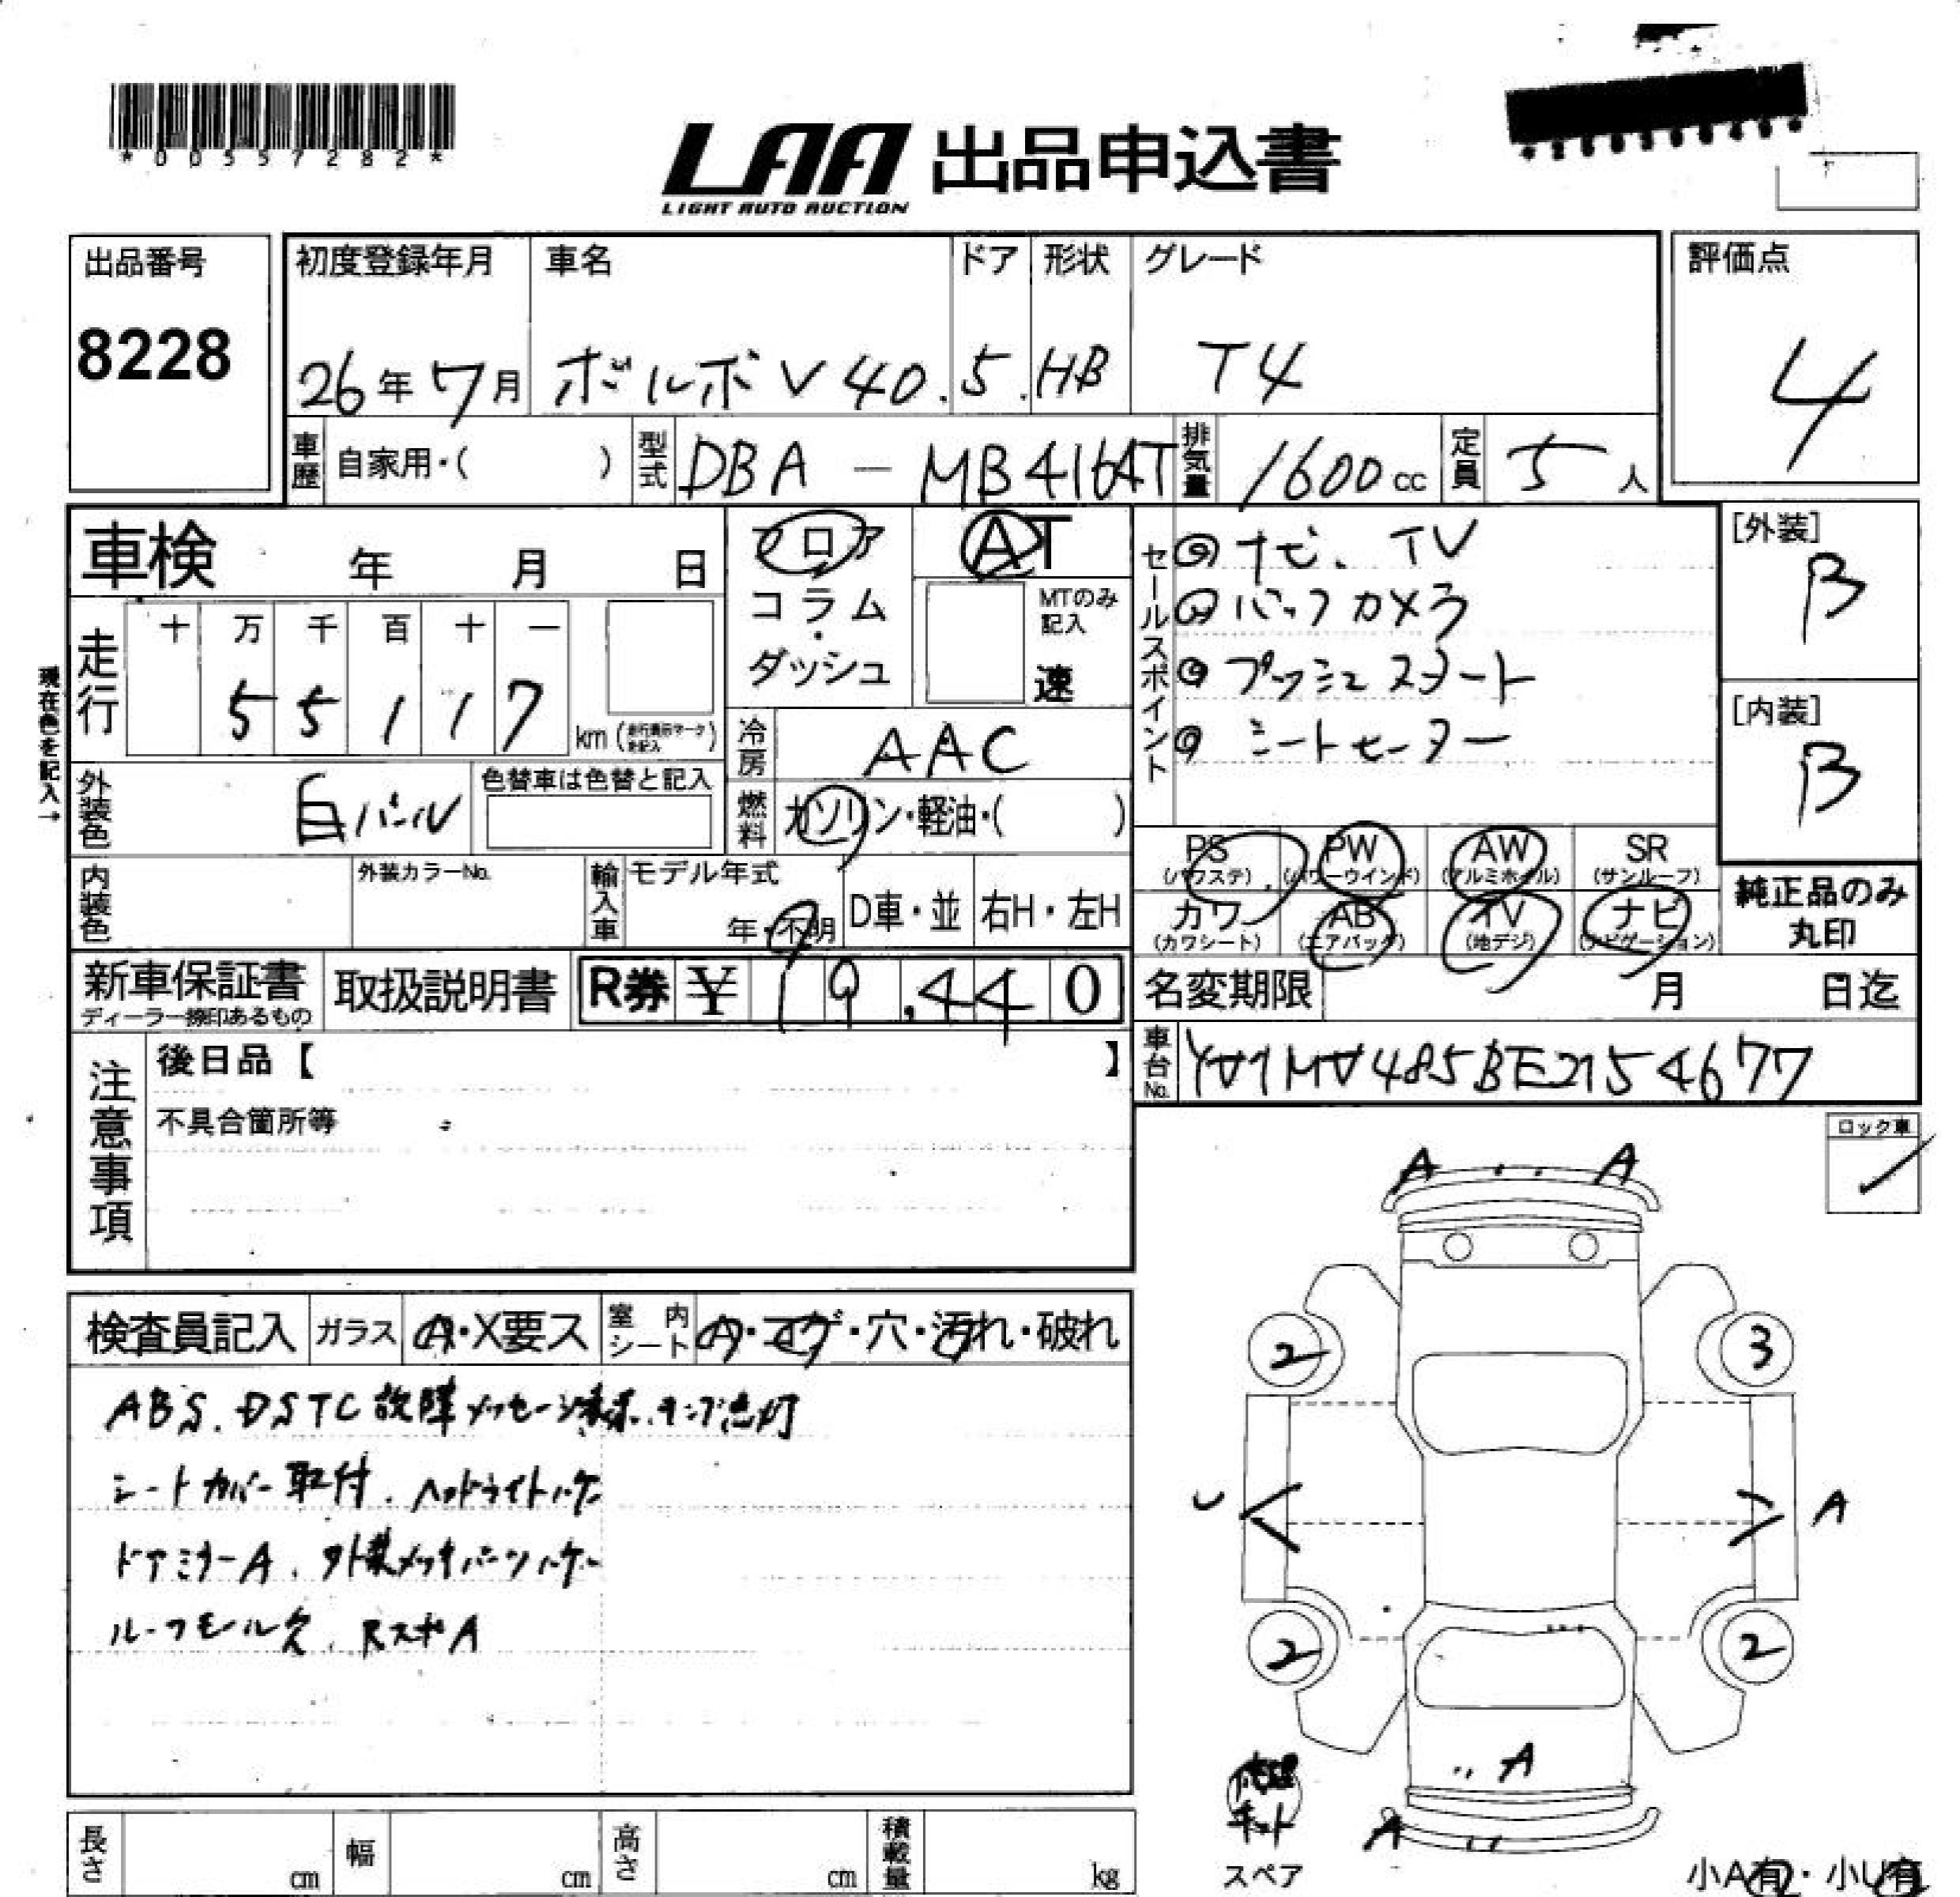 *00557282*
LAA 出品申込書
LIGHT AUTO AUCTION
出品番号
8228
初度登録年月 車名 ドア 形状 グレード
26年7月 ボルボV40. 5. HB T4
評価点
4
車歴 自家用・( ) 型式 DBA - MB4164T 排気量 1600cc 定員 5人
車検 年 月 日
フロア
コラム
・
ダッシュ
AT
MTのみ記入
速
セールスポイント
◎ナビ、TV
◎バックカメラ
◎プッシュスタート
◎シートヒーター
[外装]
B
[内装]
B
現在色を記入→
走行 十 万 千 百 十 一
5 5 1 1 7 km
冷房 AAC
外装色 白パール 色替車は色替と記入
燃料 ガソリン・軽油・( )
内装色 外装カラーNo. 輸入車 モデル年式
年・不明 D車・並 右H・左H
PS (パワステ) PW (パワーウインド) AW (アルミホイル) SR (サンルーフ)
カワ (カワシート) AB (エアバッグ) TV (地デジ) ナビ (ナビゲーション)
純正品のみ
丸印
新車保証書 取扱説明書 R券 ¥ 19,440
ディーラー捺印あるもの
名変期限 月 日迄
車台No. YV1MV485BE2154677
注意事項
後日品【 】
不具合箇所等
ロック車
A A
検査員記入 ガラス A・X要ス 室内シート A・コゲ・穴・汚れ・破れ
ABS、DSTC故障メッセージ表示、ランプ点灯
シートカバー取付、ヘッドライトハゲ
ドアミラーA、外装メッキパーツハゲ
ルーフモール欠、RスポA
2 3
U A
2 2
A
A
修理キット
スペア
小A有・小U有
長さ cm 幅 cm 高さ cm 積載量 kg